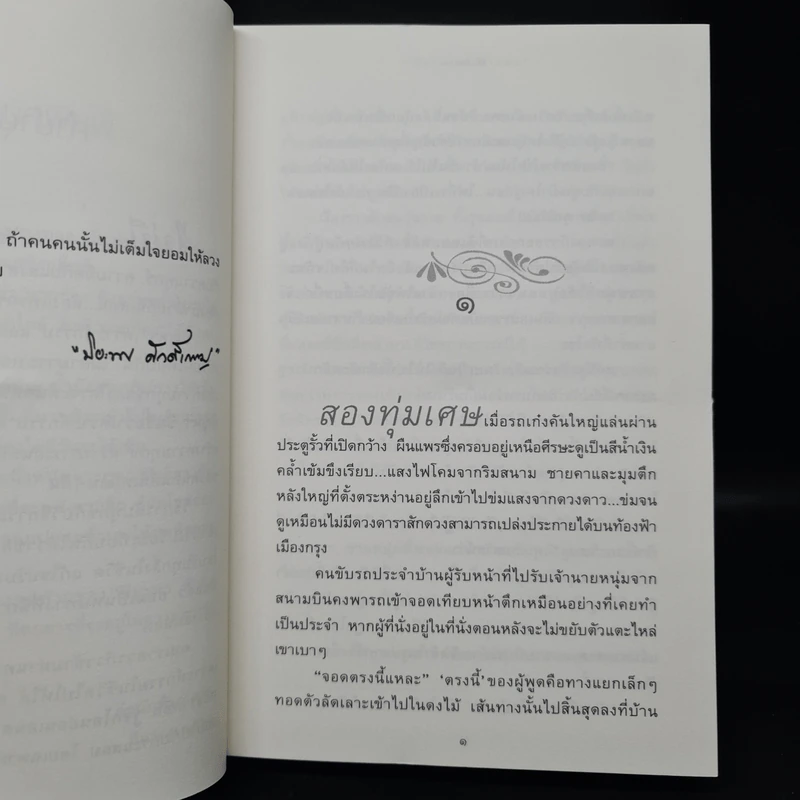 ถ้าคนคนนั้นไม่เต็มใจยอมให้ลวง
"ปิยะพร ศักดิ์เกษม"
๑
สองทุ่มเศษ เมื่อรถเก๋งคันใหญ่แล่นผ่าน
ประตูรั้วที่เปิดกว้าง ผืนแพรซึ่งครอบอยู่เหนือศีรษะดูเป็นสีน้ำเงิน
คล้ำเข้มขึงเรียบ...แสงไฟโคมจากริมสนาม ชายคาและมุมตึก
หลังใหญ่ที่ตั้งตระหง่านอยู่ลึกเข้าไปข่มแสงจากดวงดาว...ข่มจน
ดูเหมือนไม่มีดวงดาราสักดวงสามารถเปล่งประกายได้บนท้องฟ้า
เมืองกรุง
คนขับรถประจำบ้านผู้รับหน้าที่ไปรับเจ้านายหนุ่มจาก
สนามบินคงพารถเข้าจอดเทียบหน้าตึกเหมือนอย่างที่เคยทำ
เป็นประจำ หากผู้ที่นั่งอยู่ในที่นั่งตอนหลังจะไม่ขยับตัวแตะไหล่
เขาเบาๆ
“จอดตรงนี้แหละ” ‘ตรงนี้’ ของผู้พูดคือทางแยกเล็กๆ
ทอดตัวลัดเลาะเข้าไปในดงไม้ เส้นทางนั้นไปสิ้นสุดลงที่บ้าน
๑